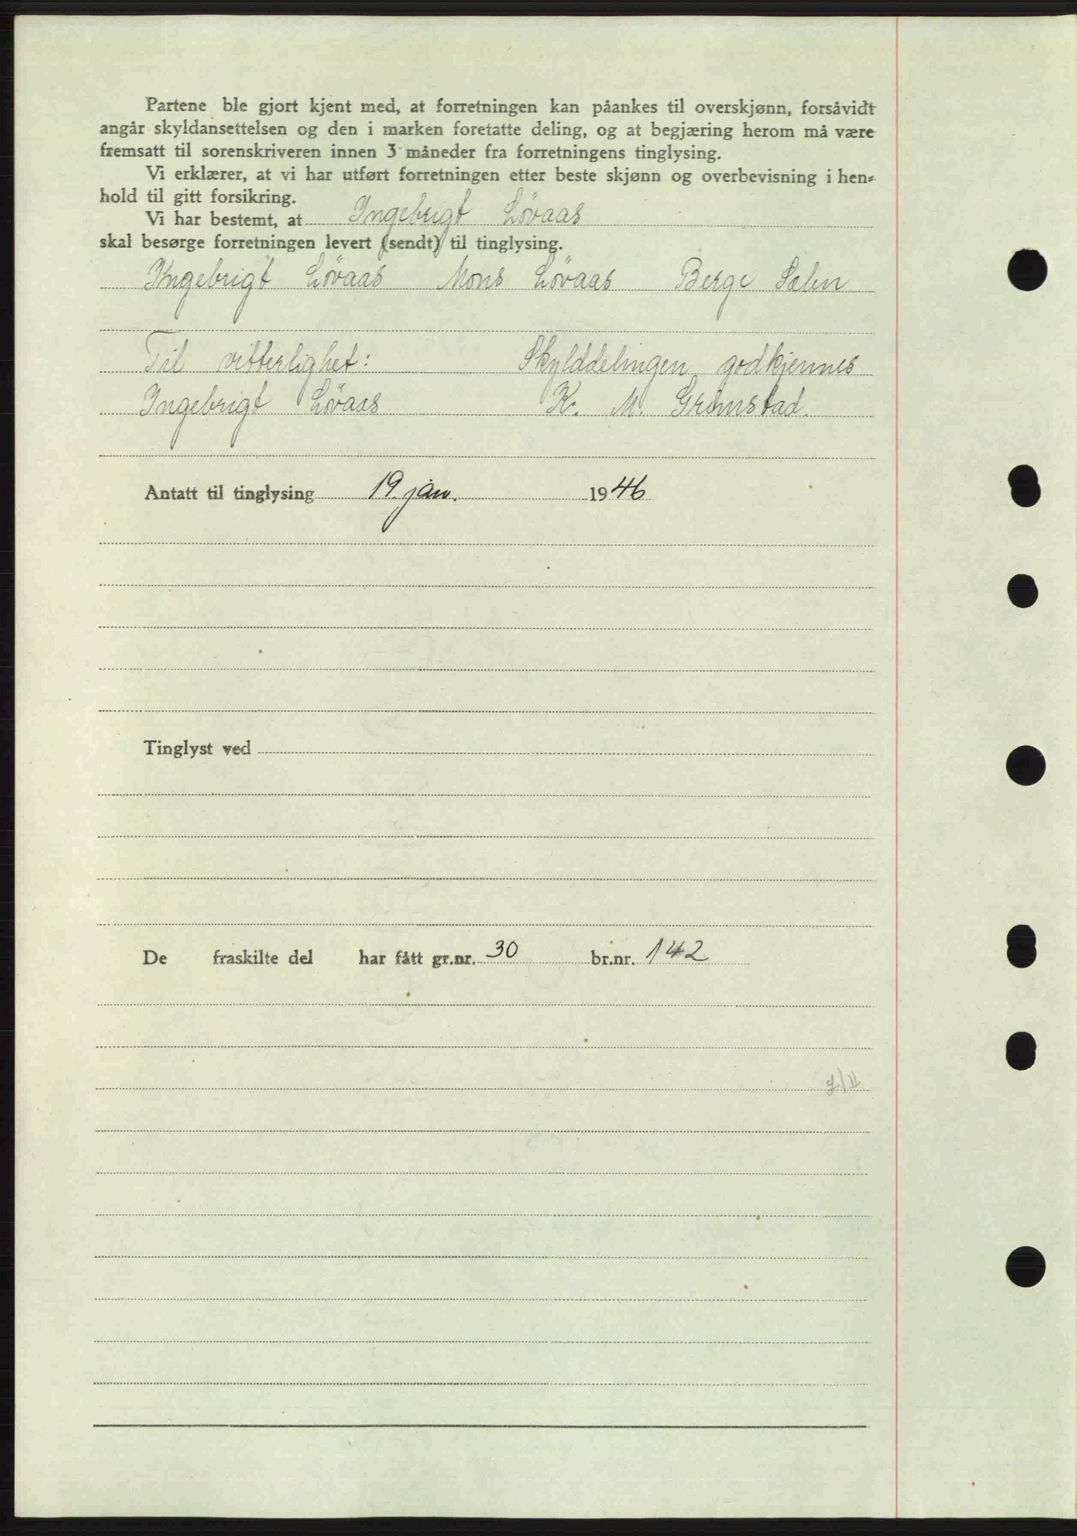 Partene ble gjort kjent med, at forretningen kan påankes til overskjønn, forsåvidt
angår skyldansettelsen og den i marken foretatte deling, og at begjæring herom må være
fremsatt til sorenskriveren innen 3 måneder fra forretningens tinglysing.
Vi erklærer, at vi har utført forretningen etter beste skjønn og overbevisning i hen-
hold til gitt forsikring.
Vi har bestemt, at Ingebrigt Løvaas
skal besørge forretningen levert (sendt) til tinglysing.
Ingebrigt Løvaas Mons Løvaas Berge Sælen
Til vitterlighet: Skylddelingen godkjennes
Ingebrigt Løvaas K. M. Grimstad.
Antatt til tinglysing 19. jan. 1946
Tinglyst ved
De fraskilte del har fått gr.nr. 30 br.nr. 142